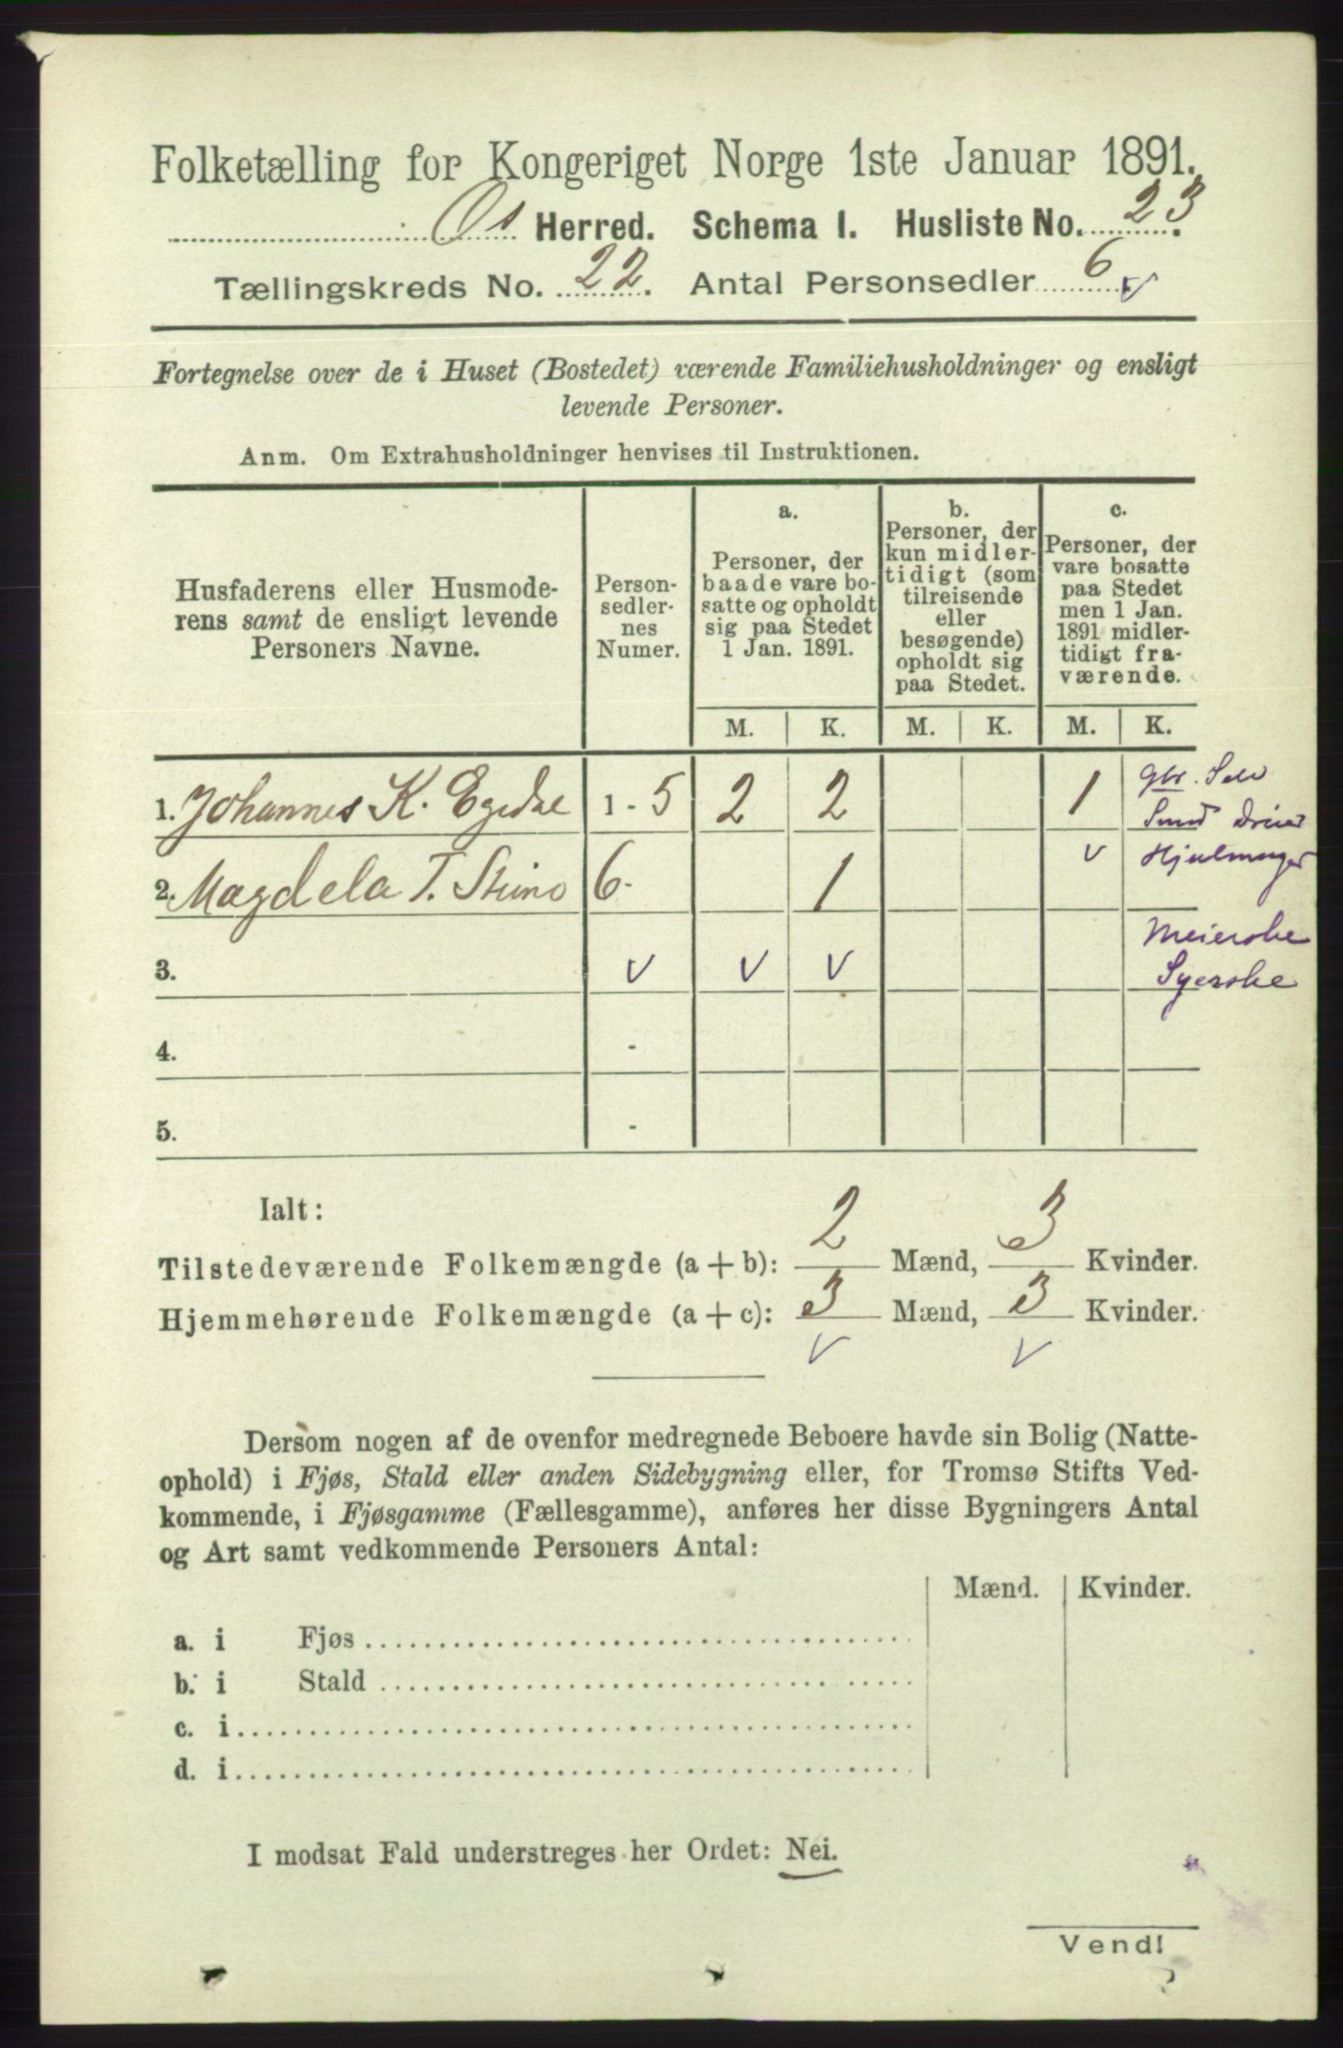 Folketælling for Kongeriget Norge 1ste Januar 1891.
Os Herred. Schema I. Husliste No. 23.
Tællingskreds No. 22. Antal Personsedler 6 v
Fortegnelse over de i Huset (Bostedet) værende Familiehusholdninger og ensligt
levende Personer.
Anm. Om Extrahusholdninger henvises til Instruktionen.
Husfaderens eller Husmode-
rens samt de ensligt levende
Personers Navne.
Person-
sedler-
nes
Numer.
a.
Personer, der
baade vare bo-
satte og opholdt
sig paa Stedet
1 Jan. 1891.
b.
Personer, der
kun midler-
tidigt (som
tilreisende
eller
besøgende)
opholdt sig
paa Stedet.
c.
Personer, der
vare bosatte
paa Stedet
men 1 Jan.
1891 midler-
tidigt fra-
værende.
M. K. M. K. M. K.
1. Johannes K. Egedal 1 - 5 2 2 1
gbr. Selv
Smed
v Hjulmager
2. Magdela T. 6 - 1
Meierske
3. v v v Syerske
4. -
5. -
Ialt:
Tilstedeværende Folkemængde (a + b): 2 Mænd, 3 Kvinder.
Hjemmehørende Folkemængde (a + c): 3 Mænd, 3 Kvinder.
v v
Dersom nogen af de ovenfor medregnede Beboere havde sin Bolig (Natte-
ophold) i Fjøs, Stald eller anden Sidebygning eller, for Tromsø Stifts Ved-
kommende, i Fjøsgamme (Fællesgamme), anføres her disse Bygningers Antal
og Art samt vedkommende Personers Antal:
Mænd. Kvinder.
a. i Fjøs
b. i Stald
c. i
d. i
I modsat Fald understreges her Ordet: Nei.
Vend!